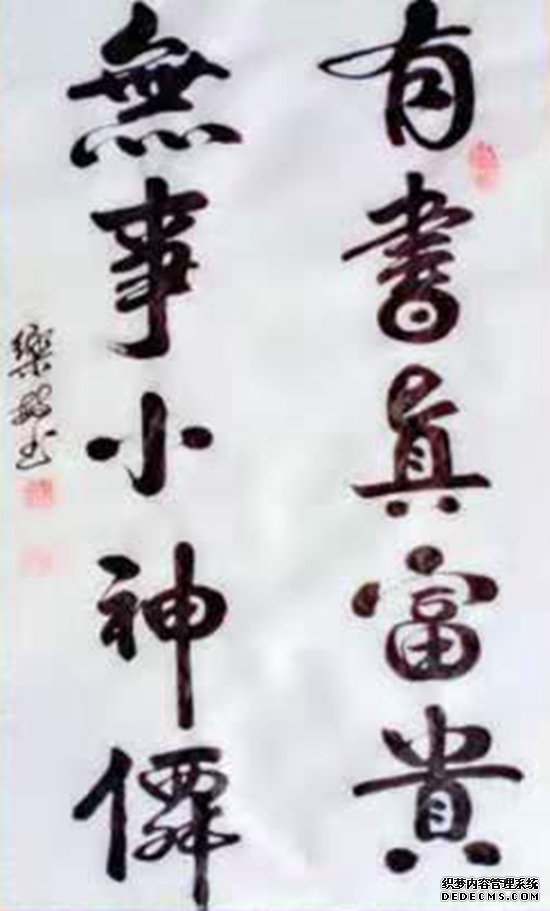 有書真富貴
無事小神僊
织梦内容管理系统
DEDECMS.COM